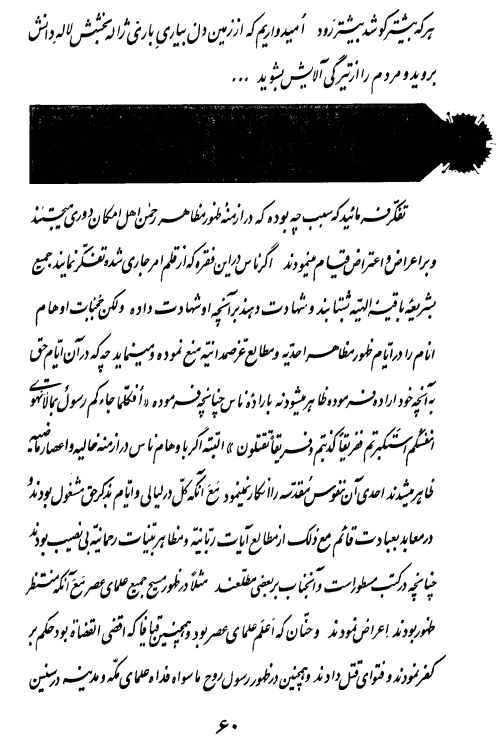 هر که بیشتر کوشد بیشتر رَود امیدواریم که از زمین دل بیاریِ باریِ ژاله بخشش لاله دانش
بروید و مردم را از تیرگی آلایش بشوید ...
تفکّر فرمائید که سبب چه بوده که در ازمنهٔ ظهور مظاهر رحمن اهل امکان دوری میجستند
و بر اعراض و اعتراض قیام مینمودند اگر ناس در این فقره که از قلم امر جاری شده تفکّر نمایند جمیع
بشریعهٔ باقیهٔ الهیّه بشتابند و شهادت دهند بر آنچه او شهادت داده ولکن حُجُبات اوهام
انام را در ایّام ظهور مظاهر احدیّه و مطالع عزّ صمدانیّه منع نموده و مینماید چه که در آن ایّام حقّ
به آنچه خود اراده فرموده ظاهر میشود نه بارادهٔ ناس چنانچه فرموده «أفکلّما جاءکم رسولٌ بما لا تهوی
انفسکم استکبرتم ففریقاً کذّبتم و فریقاً تقتلون» البتّه اگر باوهام ناس در ازمنهٔ خالیه و اعصار ماضیه
ظاهر میشدند احدی آن نفوس مقدّسه را انکار نمینمود مَعَ آنکه کلّ در لیالی و ایّام بذکر حقّ مشغول بودند و
در معابد بعبادت قائم مع ذلک از مطالع آیات ربّانیّه و مظاهر بیّنات رحمانیّه بی نصیب بودند
چنانچه در کتب مسطور است و آنجناب بر بعضی مطلّعند مثلاً در ظهور مسیح جمیع علمای عصر مَعَ آنکه منتظر
ظهور بودند اعراض نمودند و حنّان که اَعلَم علمای عصر بود و همچنین قیافا که اقضی القضاة بود حکم بر
کفر نمودند و فتوای قتل دادند و همچنین در ظهور رسول روح ما سواه فداه علمای مکّه و مدینه در سنین
۶۰